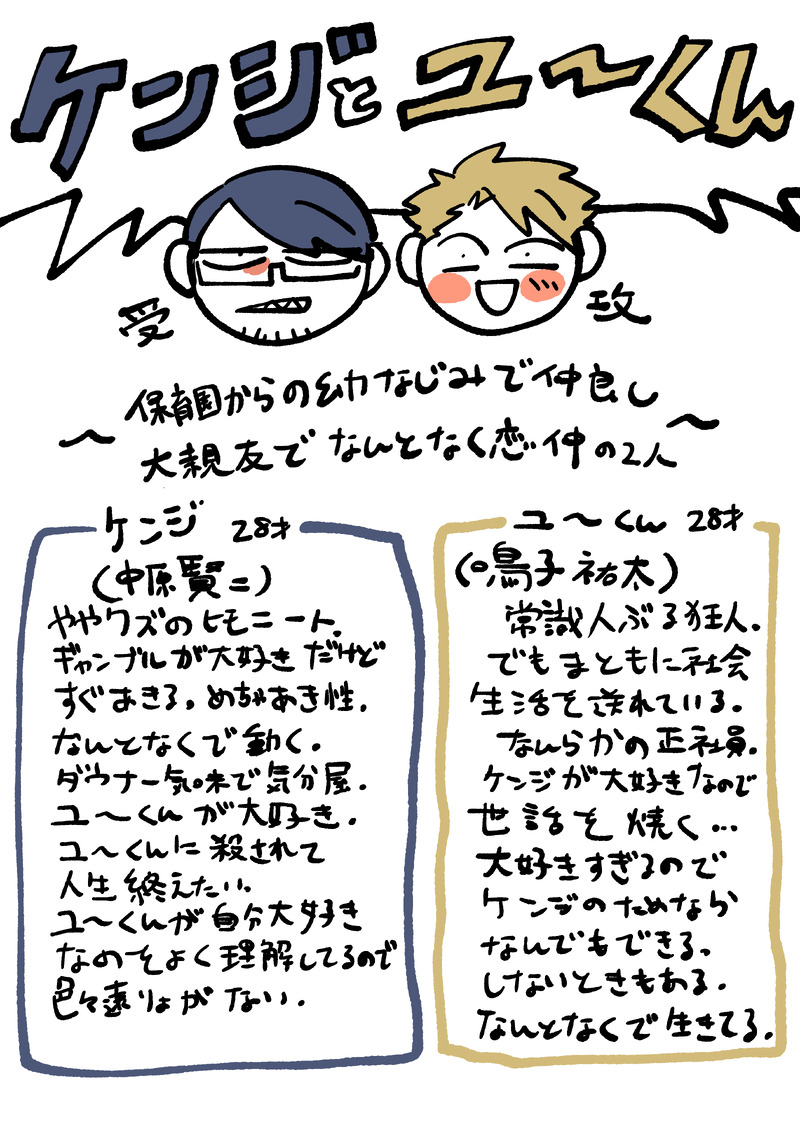 ケンジとユ〜くん
受
攻
〜保育園からの幼なじみで仲良し
大親友でなんとなく恋仲の2人〜
ケンジ 28才
(中原賢二)
ややクズのヒモニート。
ギャンブルが大好きだけど
すぐあきる。めちゃあき性。
なんとなくで動く。
ダウナー気味で気分屋。
ユ〜くんが大好き。
ユ〜くんに殺されて
人生終えたい。
ユ〜くんが自分大好き
なのをよく理解してるので
色々遠りょがない。
ユ〜くん 28才
(鳴子祐太)
常識人ぶる狂人。
でもまともに社会
生活を送れている。
なんらかの正社員。
ケンジが大好きなので
世話を焼く…
大好きすぎるので
ケンジのためなら
なんでもできる。
しないときもある。
なんとなくで生きてる。